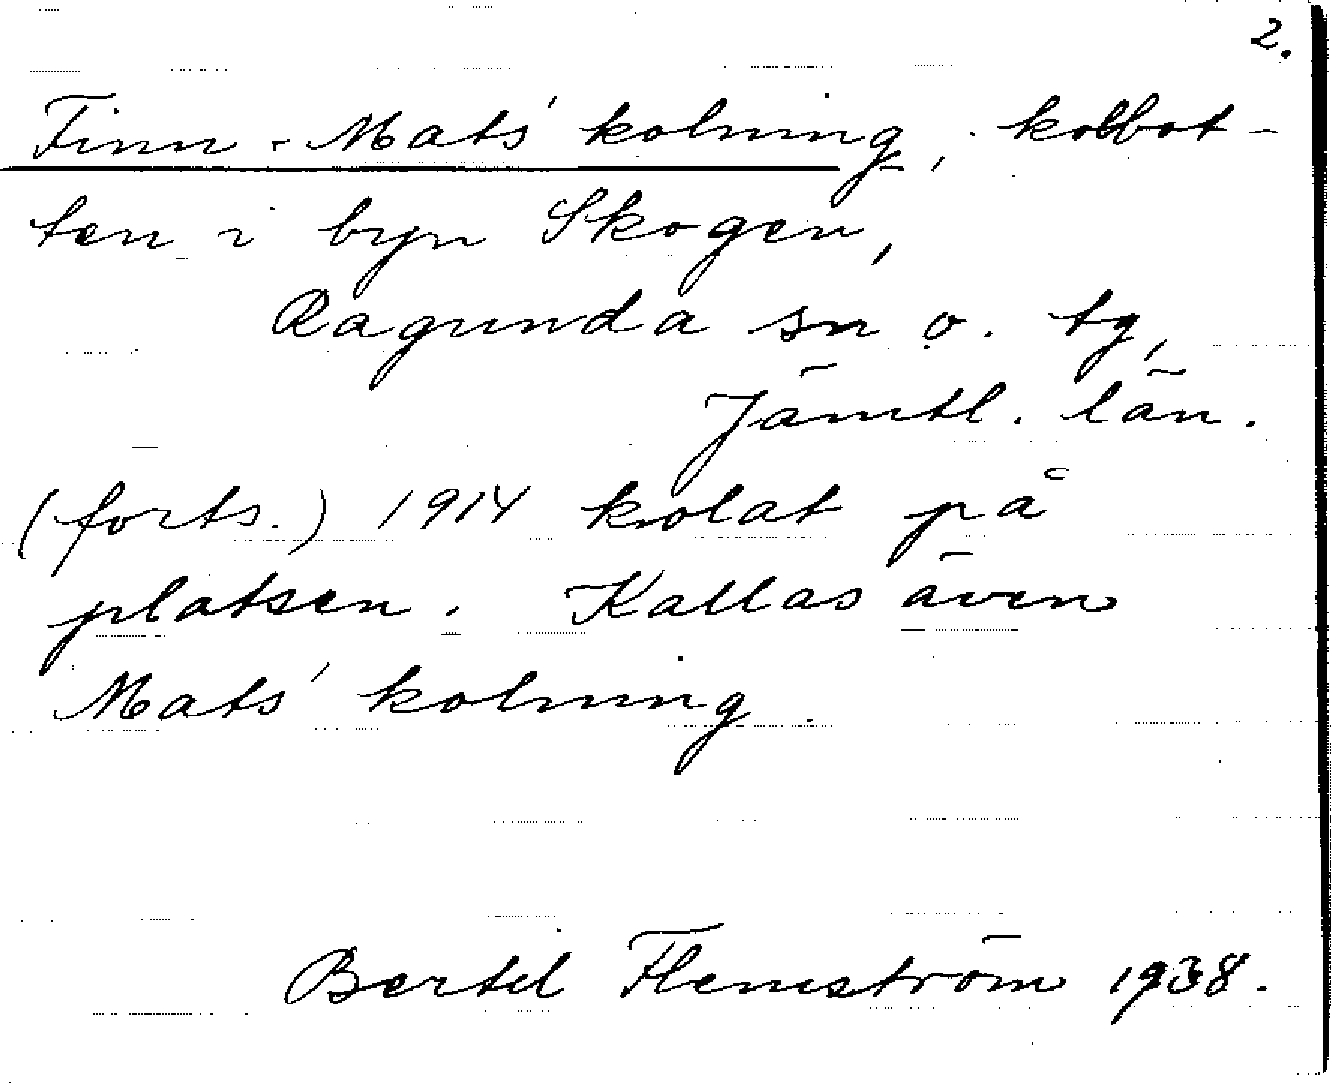 2.
Finn-Mats' kolning, kolbot-
ten i byn Skogen,
Ragunda sn o. tg,
Jämtl. län.
(forts.) 1914 kolat på
platsen. Kallas även
Mats' kolning
Bertil Flemström 1938.